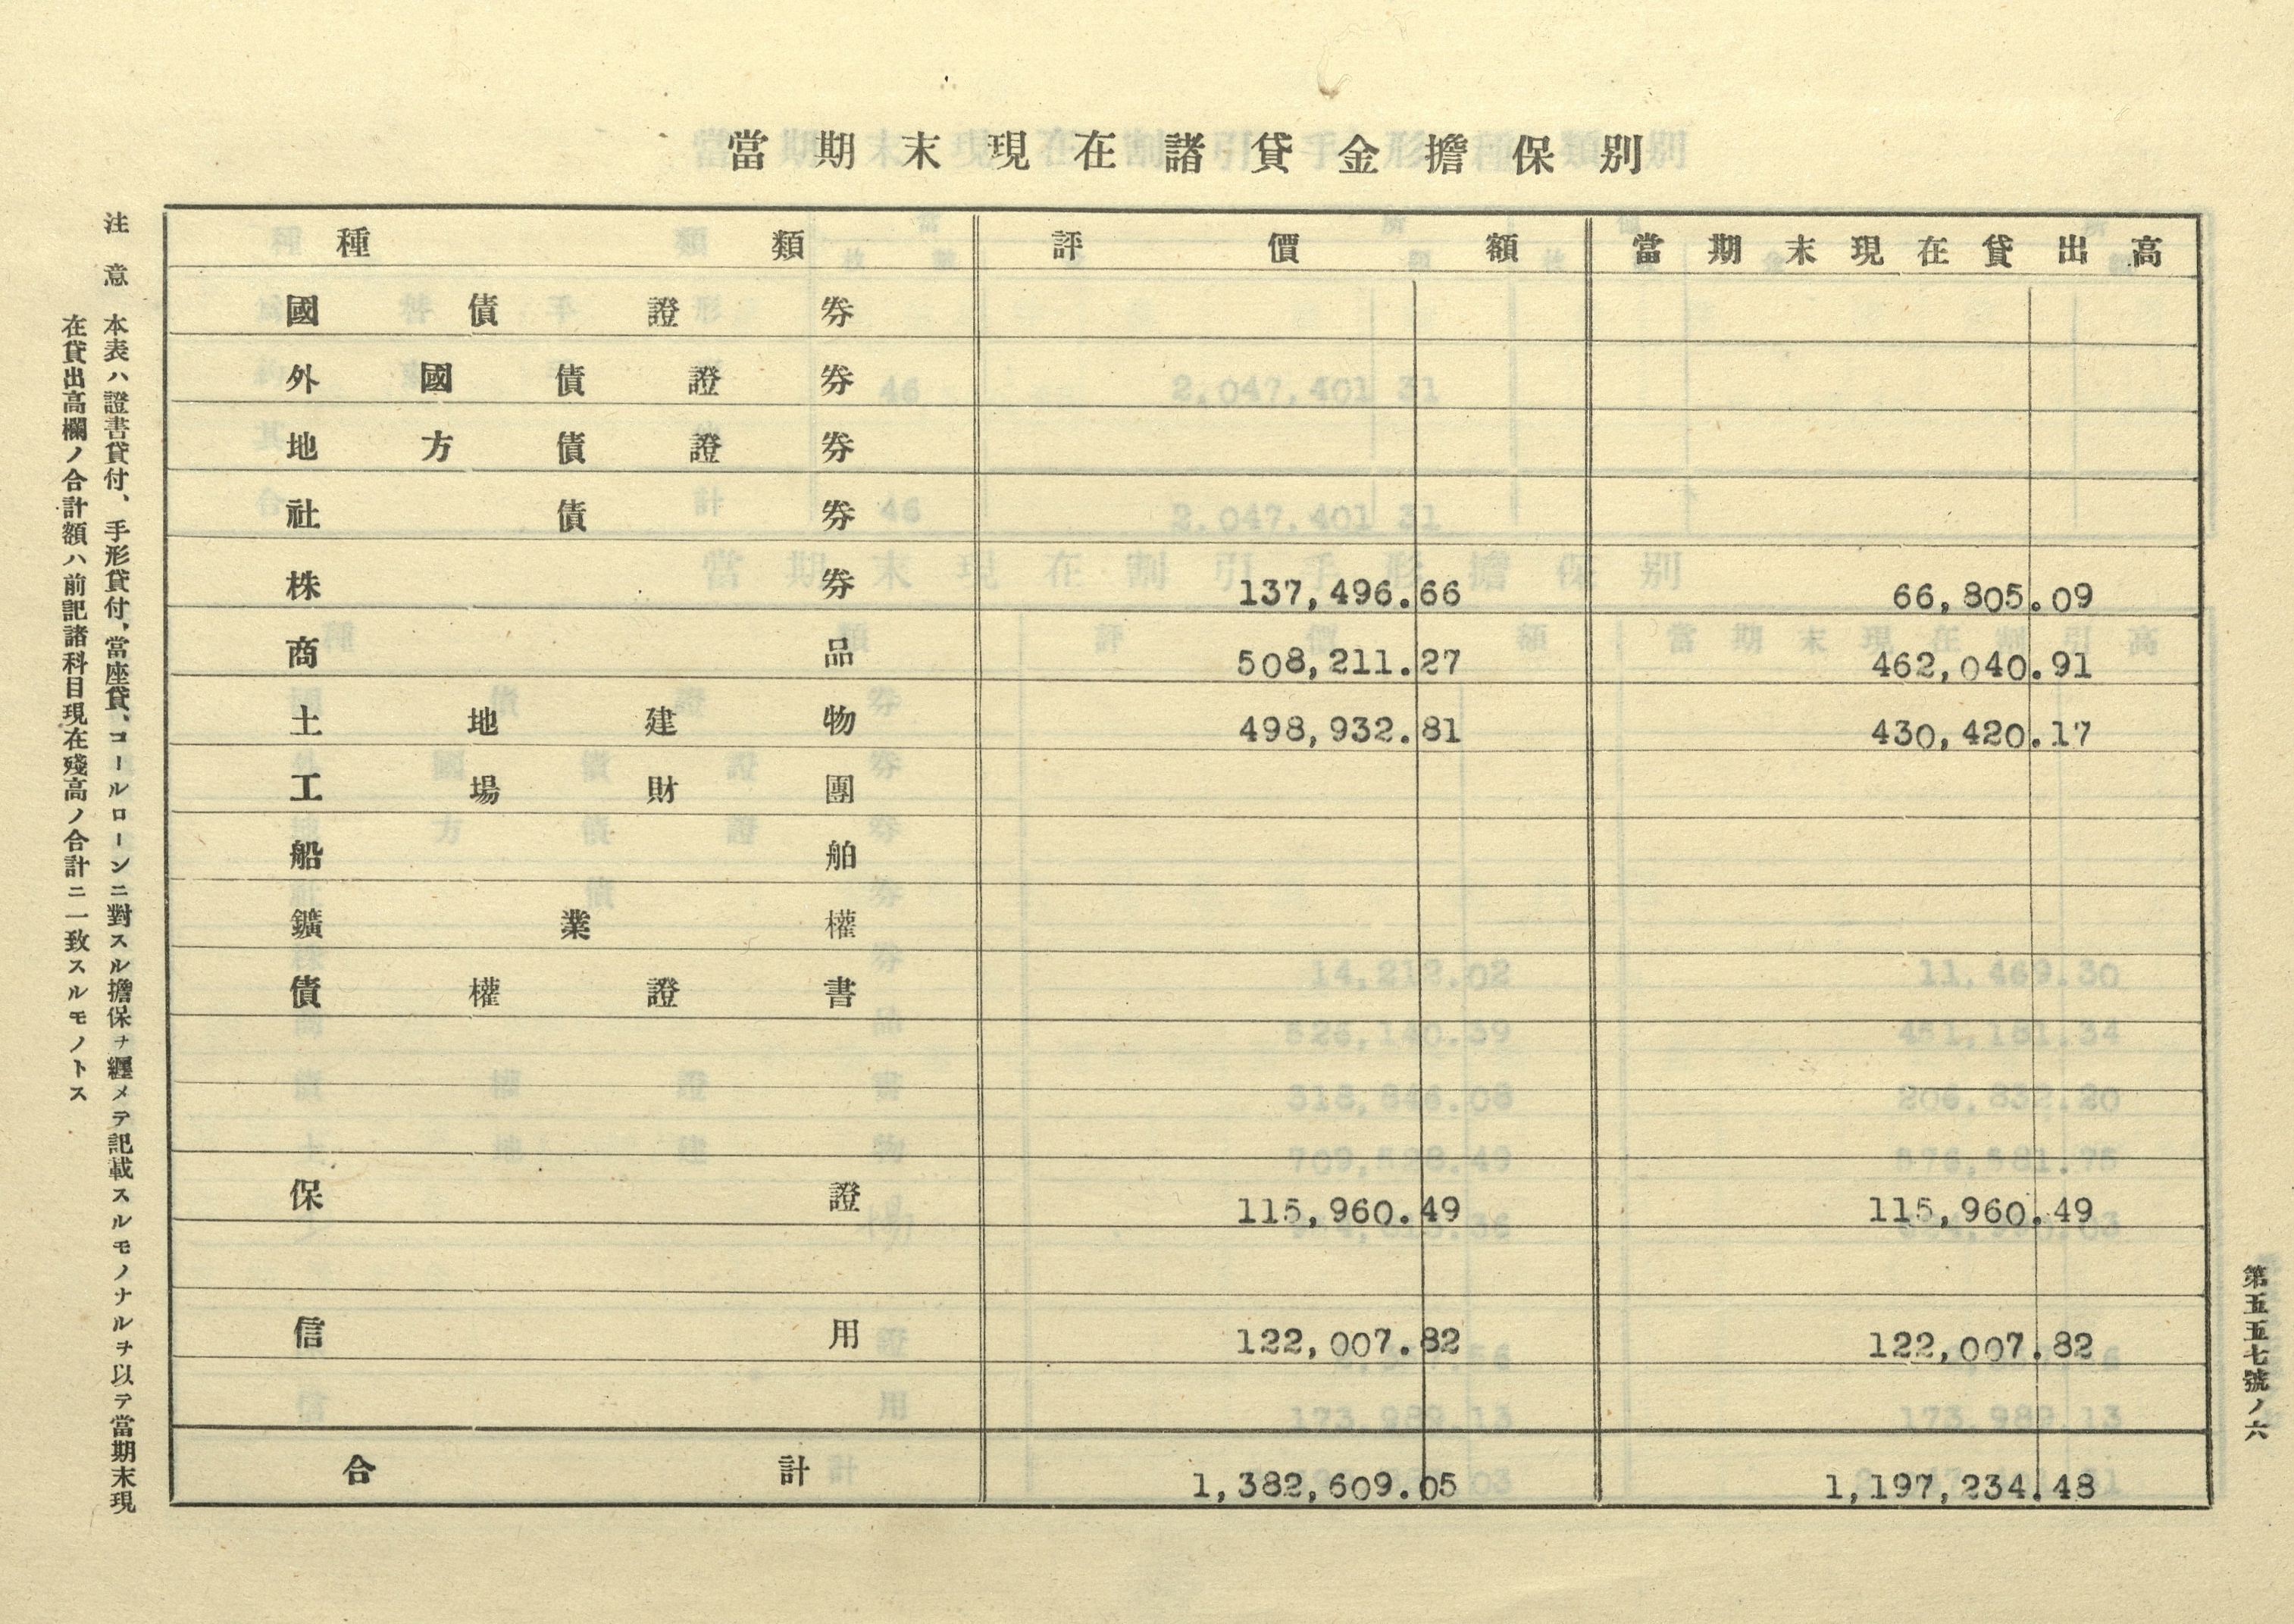 當期末現在諸貸金擔保別
種類 評價額 當期末現在貸出高
國債證券
外國債證券
地方債證券
社債券
株券 137,496.66 66,805.09
商品 508,211.27 462,040.91
土地建物 498,932.81 430,420.17
工場財團
船舶
鑛業權
債權證書
保證 115,960.49 115,960.49
信用 122,007.82 122,007.82
合計 1,382,609.05 1,197,234.48
第五五七號ノ六
注意 本表ハ證書貸付、手形貸付、當座貸、コールローンニ對スル擔保ヲ纒メテ記載スルモノナルヲ以テ當期末現
在貸出高欄ノ合計額ハ前記諸科目現在殘高ノ合計ニ一致スルモノトス